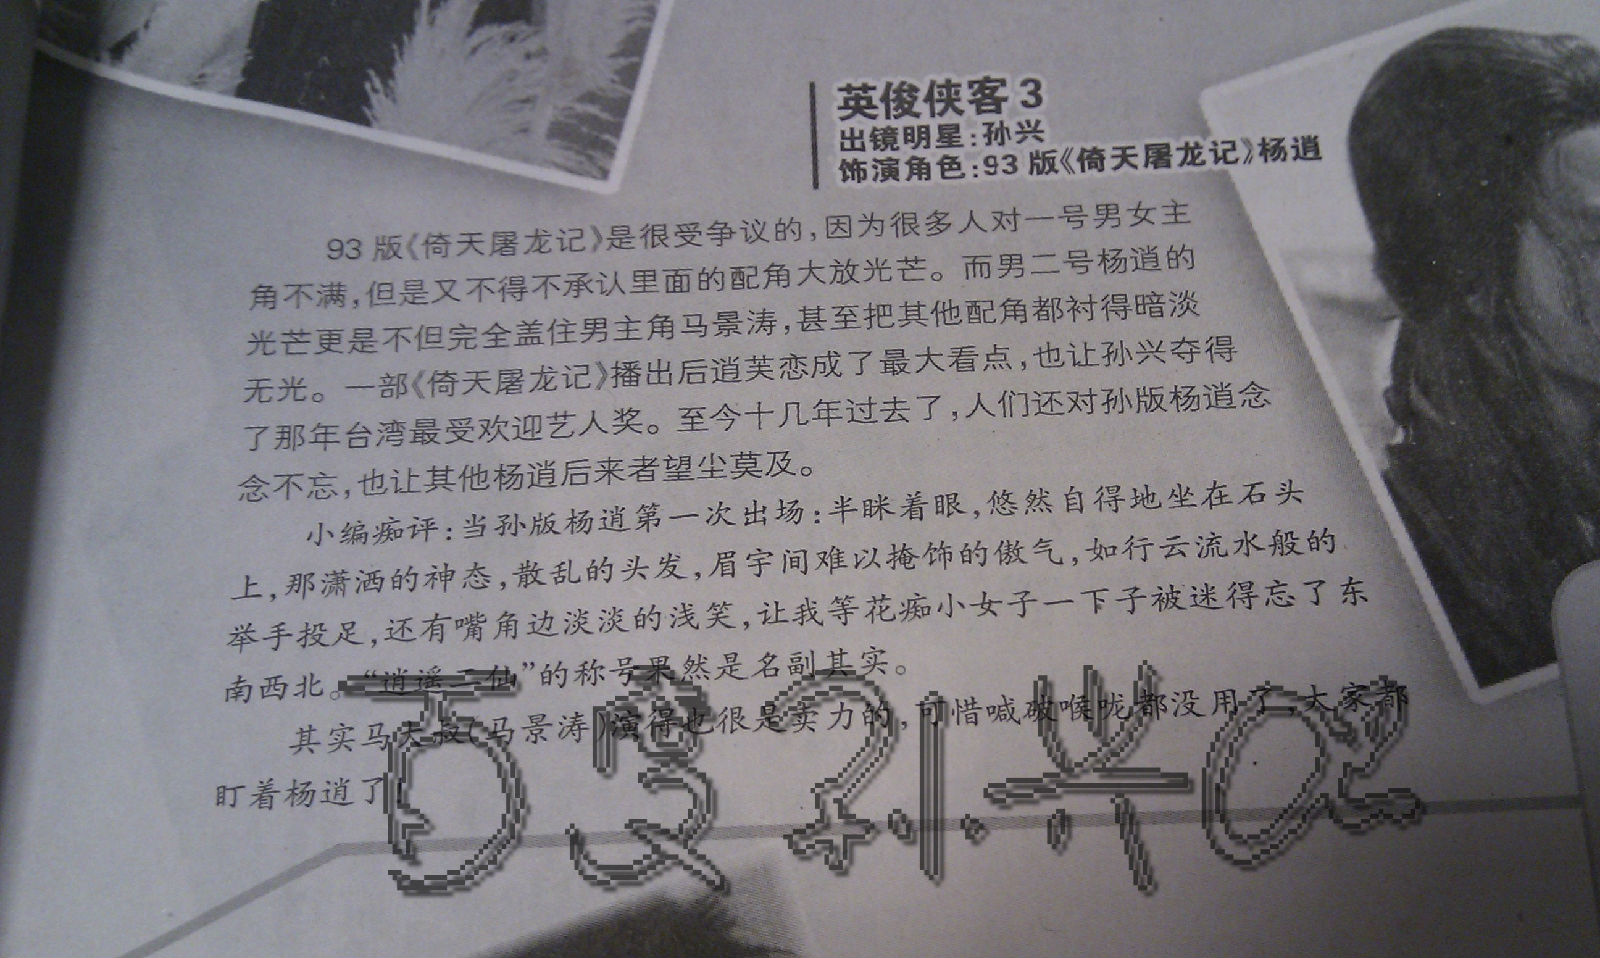 英俊侠客3
出镜明星:孙兴
饰演角色:93版《倚天屠龙记》杨逍
93版《倚天屠龙记》是很受争议的,因为很多人对一号男女主
角不满,但是又不得不承认里面的配角大放光芒。而男二号杨逍的
光芒更是不但完全盖住男主角马景涛,甚至把其他配角都衬得暗淡
无光。一部《倚天屠龙记》播出后逍芙恋成了最大看点,也让孙兴夺得
了那年台湾最受欢迎艺人奖。至今十几年过去了,人们还对孙版杨逍念
念不忘,也让其他杨逍后来者望尘莫及。
小编痴评:当孙版杨逍第一次出场:半眯着眼,悠然自得地坐在石头
上,那潇洒的神态,散乱的头发,眉宇间难以掩饰的傲气,如行云流水般的
举手投足,还有嘴角边淡淡的浅笑,让我等花痴小女子一下子被迷得忘了东
南西北。“逍遥二仙”的称号果然是名副其实。
其实马大叔(马景涛)演得也很是卖力的,可惜喊破喉咙都没用了,大家都
盯着杨逍了!
百度孙兴02